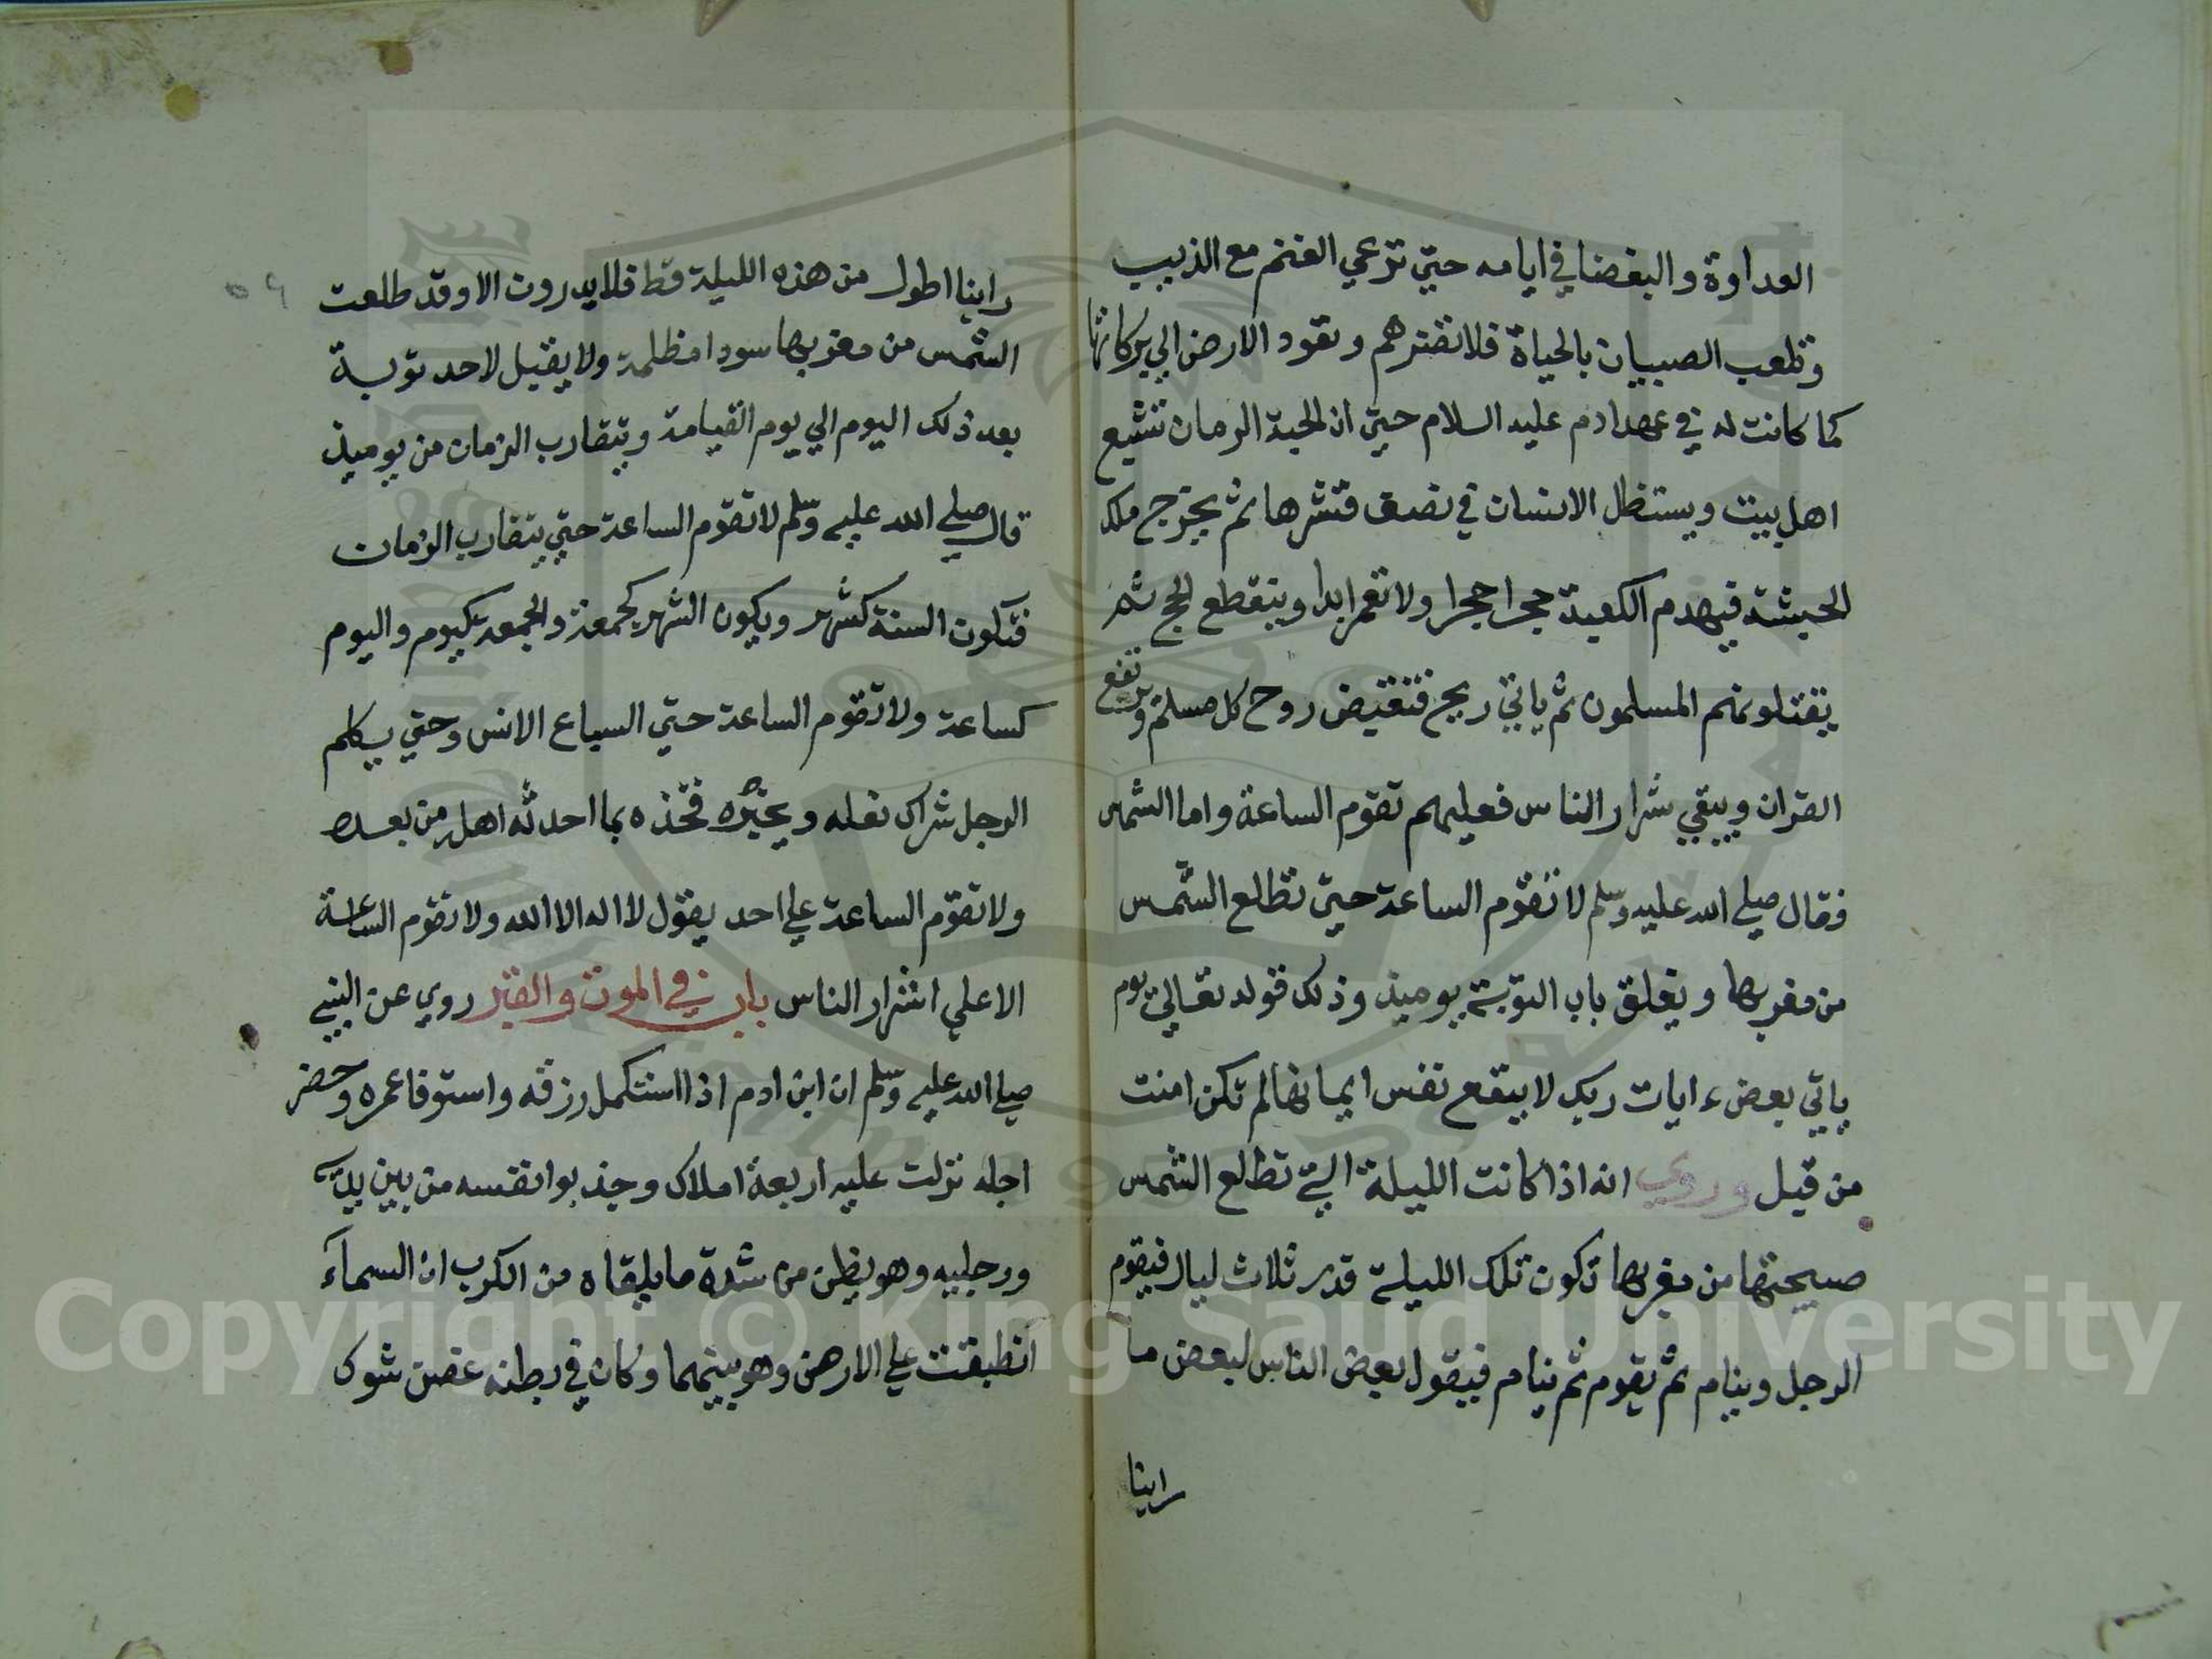 العداوة والبغضا في ايامه حتي ترعي الغنم مع الذيب
وتلعب الصبيان بالحياة فلا تضرهم وتعود الارض الي بركاتها
كما كانت له في عهد ادم عليه السلام حتي ان الحبة الرمان تشبع
اهل بيت ويستظل الانسان في نصف قشرها ثم يخرج ملك
الحبشة فيهدم الكعبة حجرا حجرا ولا تعمر ابدا وينقطع الحج ثم
يقتلونهم المسلمون ثم ياتي ريح فتقبض روح كل مسلم ويرتفع
القران ويبقي شرار الناس فعليهم تقوم الساعة واما الشمس
فقال صلي الله عليه وسلم لا تقوم الساعة حتي تطلع الشمس
من مغربها ويغلق باب التوبة يوميذ وذلك قوله تعالي يوم
ياتي بعض ءايات ربك لا ينفع نفس ايمانها لم تكن امنت
من قبل وروي انه اذا كانت الليلة التي تطلع الشمس
صبيحتها من مغربها تكون تلك الليلة قدر ثلاث ليال فيقوم
الرجل وينام ثم يقوم ثم ينام فيقول بعض الناس لبعض ما
راينا
٥٩
راينا اطول من هذه الليلة قط فلا يدرون الا وقد طلعت
الشمس من مغربها سودا مظلمة ولا يقبل لاحد توبة
بعد ذلك اليوم الي يوم القيامة ويتقارب الزمان من يوميذ
قال صلي الله عليه وسلم لا تقوم الساعة حتي يتقارب الزمان
فتكون السنة كشهر ويكون الشهر كجمعة والجمعة كيوم واليوم
كساعة ولا تقوم الساعة حتي السباع الانس وحتي يكلم
الرجل شراك نعله ويخبره فخذه بما احدثه اهل من بعده
ولا تقوم الساعة علي احد يقول لا اله الا الله ولا تقوم الساعة
الا علي اشرار الناس باب في الموت والقبر روي عن النبي
صلي الله عليه وسلم ان ابن ادم اذا استكمل رزقه واستوفا عمره وحضر
اجله نزلت عليه اربعة املاك وجذبوا نفسه من بين يديه
ورجليه وهو يظن من شدة ما يلقاه من الكرب ان السماء
انطبقت علي الارض وهو بينهما وكان في بطنه غصن شوك
Copyright © King Saud University